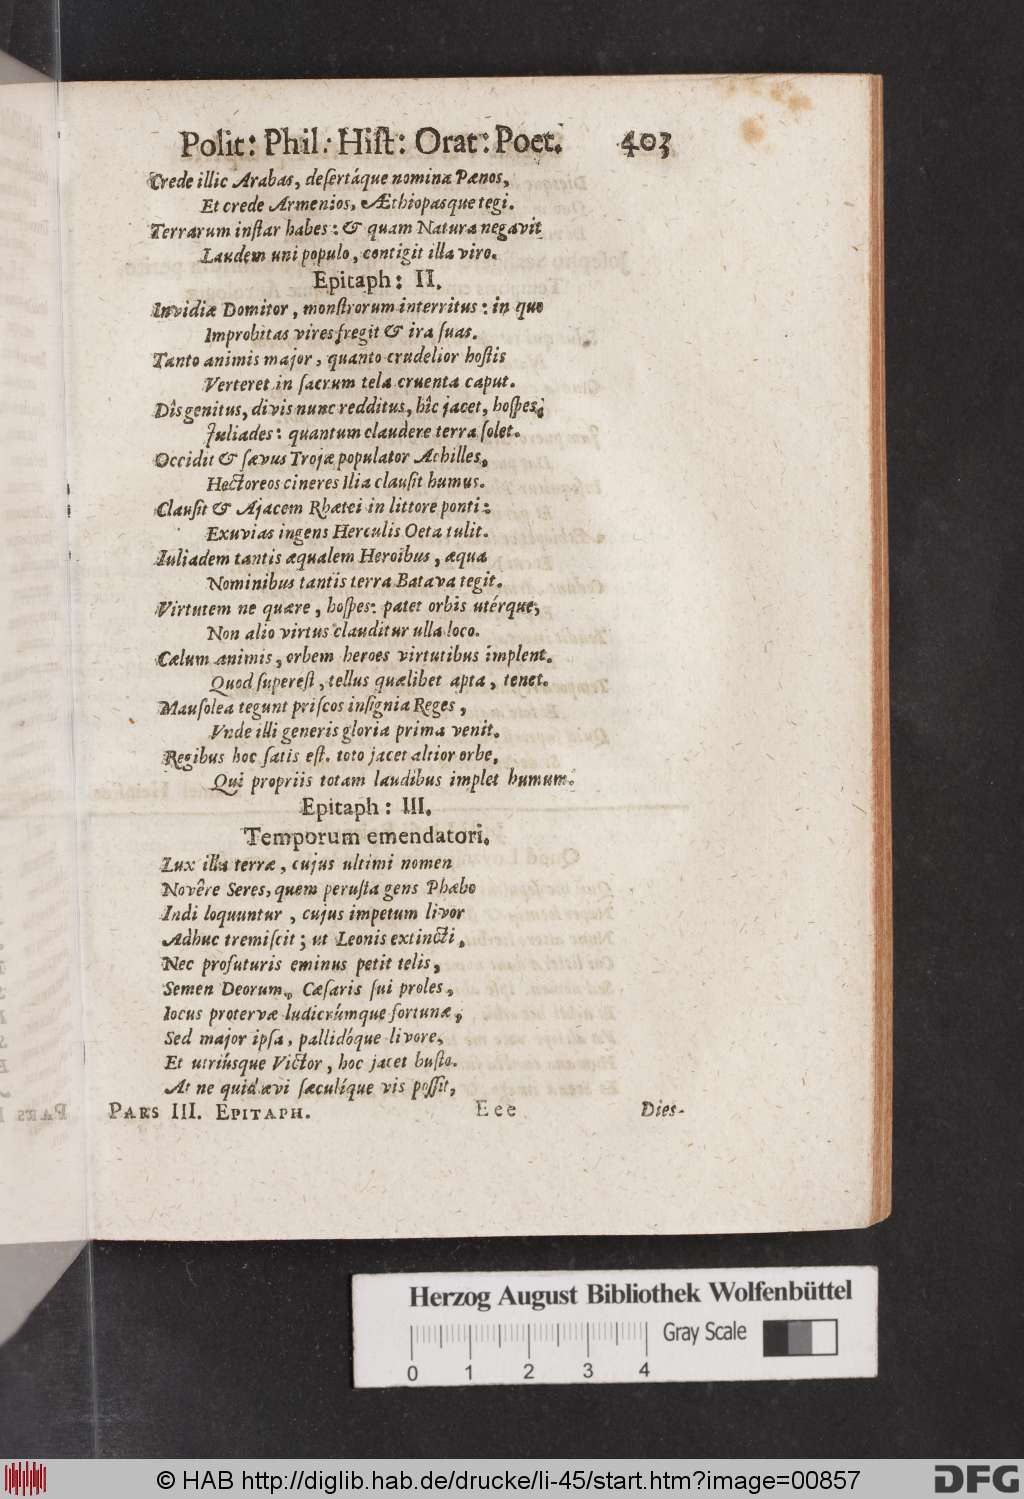 Polit: Phil: Hiſt: Orat: Poet. 403
Crede illic Arabas, deſertáque nomina Pænos,
Et crede Armenios, Æthiopasque tegi.
Terrarum inſtar habes: & quam Natura negavit
Laudem uni populo, contigit illa viro.
Epitaph: II.
Invidiæ Domitor, monſtrorum interritus: in quo
Improbitas vires fregit & ira ſuas.
Tanto animis major, quanto crudelior hoſtis
Verteret in ſacrum tela cruenta caput.
Dîs genitus, divis nunc redditus, hîc jacet, hoſpes,
Juliades: quantum claudere terra ſolet.
Occidit & ſævus Trojæ populator Achilles,
Hectoreos cineres Ilia clauſit humus.
Clauſit & Ajacem Rhætei in littore ponti:
Exuvias ingens Herculis Oeta tulit.
Iuliadem tantis æqualem Heroibus, æqua
Nominibus tantis terra Batava tegit.
Virtutem ne quære, hoſpes: patet orbis utérque,
Non alio virtus clauditur ulla loco.
Cælum animis, orbem heroes virtutibus implent.
Quod ſupereſt, tellus quælibet apta, tenet.
Mauſolea tegunt priſcos inſignia Reges,
Vnde illi generis gloria prima venit.
Regibus hoc ſatis eſt. toto jacet altior orbe,
Qui propriis totam laudibus implet humum.
Epitaph: III.
Temporum emendatori.
Lux illa terræ, cujus ultimi nomen
Novêre Seres, quem peruſta gens Phæbo
Indi loquuntur, cujus impetum livor
Adhuc tremiſcit; ut Leonis extincti,
Nec profuturis eminus petit telis,
Semen Deorum, Cæſaris ſui proles,
Iocus protervæ ludicrúmque fortunæ,
Sed major ipſa, pallidóque livore,
Et utriúsque Victor, hoc jacet buſto.
At ne quid ævi ſæculíque vis poſſit,
PARS III. EPITAPH. Eee Dies-
Herzog August Bibliothek Wolfenbüttel
Gray Scale
0 1 2 3 4
© HAB http://diglib.hab.de/drucke/li-45/start.htm?image=00857
DFG